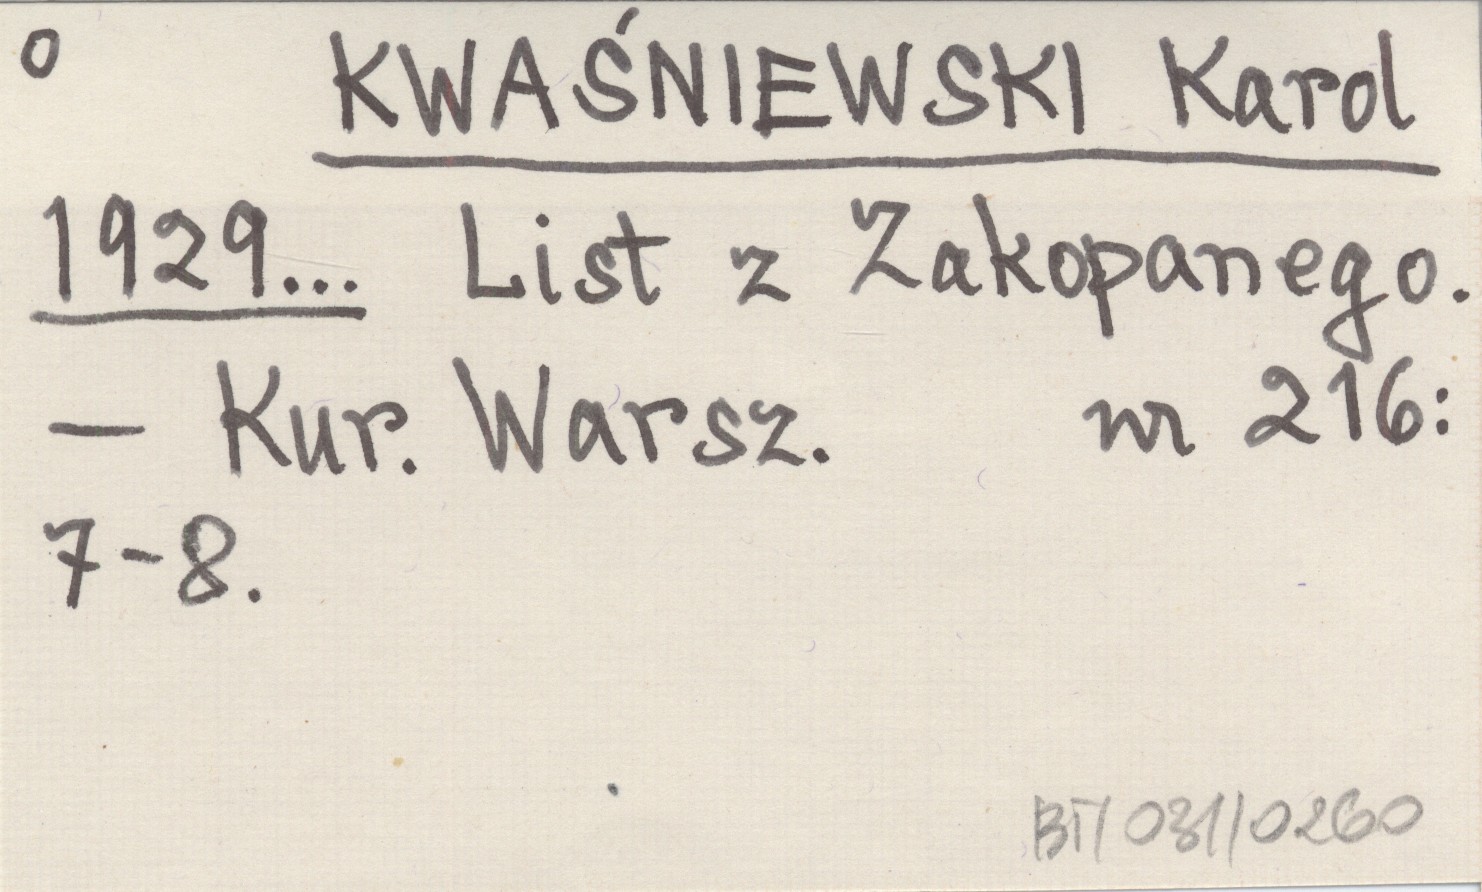 o KWAŚNIEWSKI Karol
1929... List z Zakopanego.
— Kur. Warsz. nr 216:
7-8.
BT/031/0260